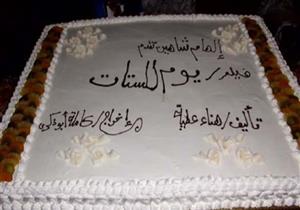 إلهام شاهين تقدم
فيلم / يوم للستات
تأليف / هناء عطية
وإخراج / كاملة أبو ذكرى